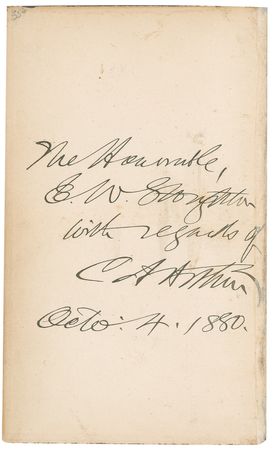 The Honorable,
E. W. Stoughton
with regards of
C A Arthur
Octo: 4. 1880.